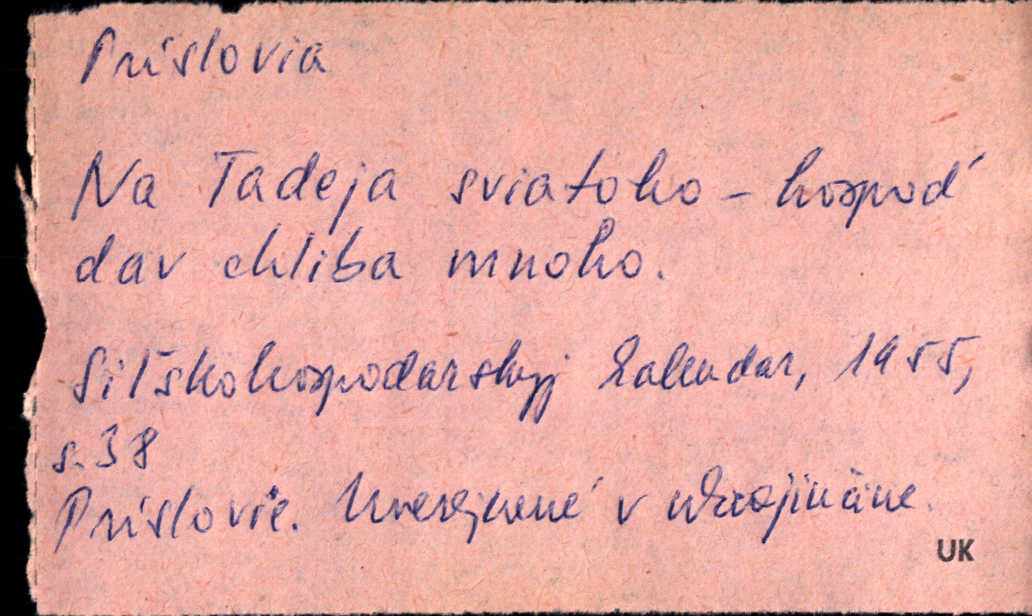 Príslovia
Na Tadeja sviatoho – hospod'
dav chliba mnoho.
Sil'skohospodarskyj kalendar, 1955,
s. 38
Príslovie. Uverejnené v ukrajinčine.
UK